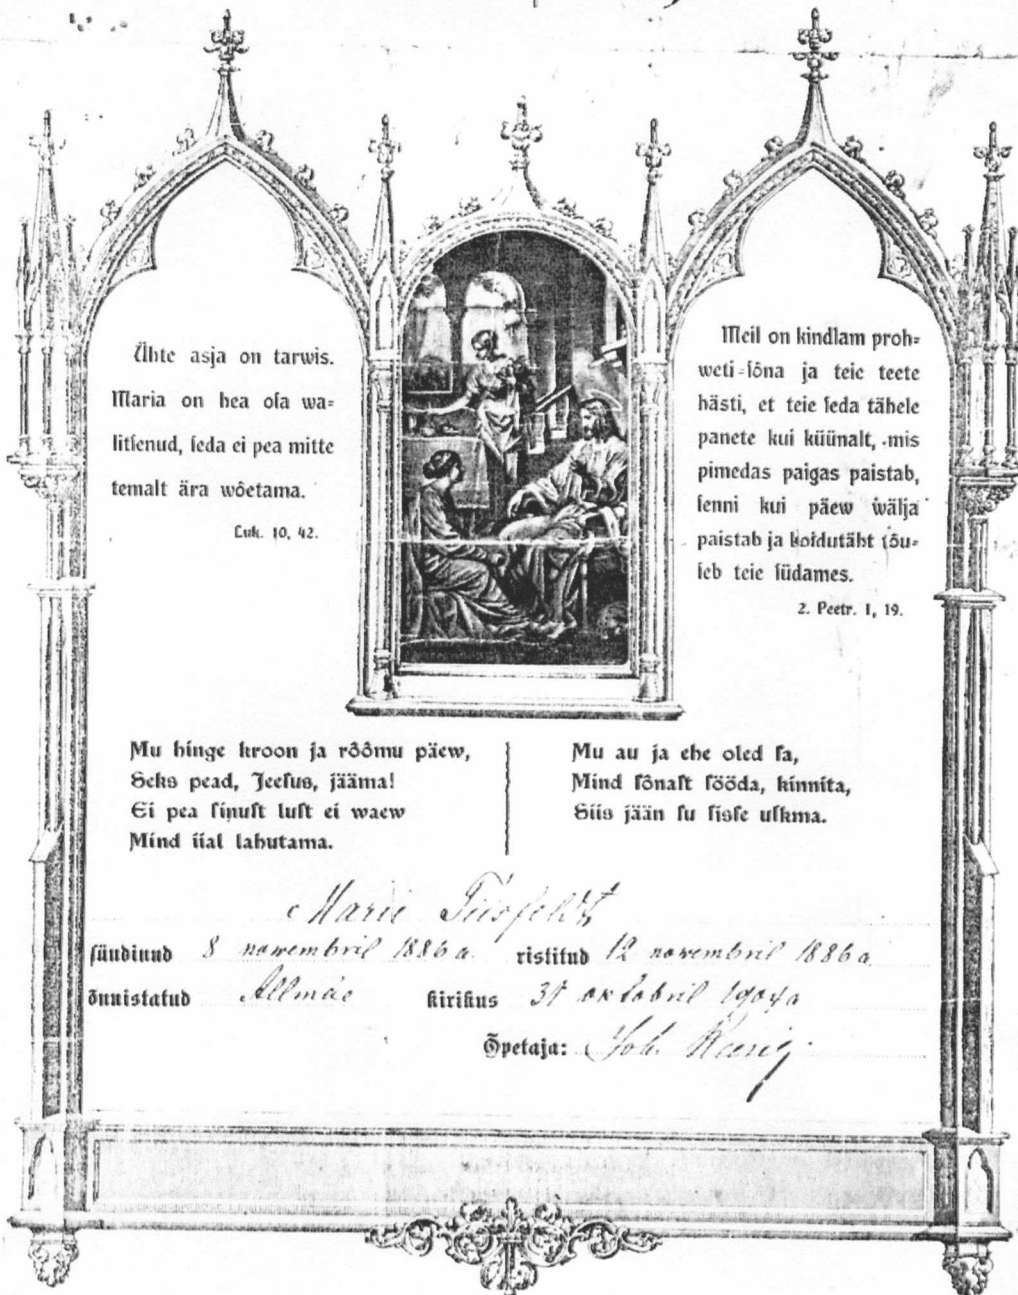 Ühte asja on tarwis.
Maria on hea oſa wa=
litſenud, ſeda ei pea mitte
temalt ära wõetama.
Luk. 10, 42.
Meil on kindlam proh=
weti=ſõna ja teie teete
hästi, et teie ſeda tähele
panete kui küünalt, mis
pimedas paigas paistab,
ſenni kui päew wälja
paistab ja koidutäht tõu=
ſeb teie ſüdames.
2. Peetr. 1, 19.
Mu hinge kroon ja rõõmu päew,
Seks pead, Jeeſus, jääma!
Ei pea ſinuſt luſt ei waew
Mind iial lahutama.
Mu au ja ehe oled ſa,
Mind ſõnaſt ſööda, kinnita,
Siis jään ſu ſiſſe uſkma.
Marie
ſündinud 8 nowembril 1886 a. ristitud 12 nowembril 1886 a
õnnistatud kirikus 31 oktobril 1904 a
Õpetaja: Joh.